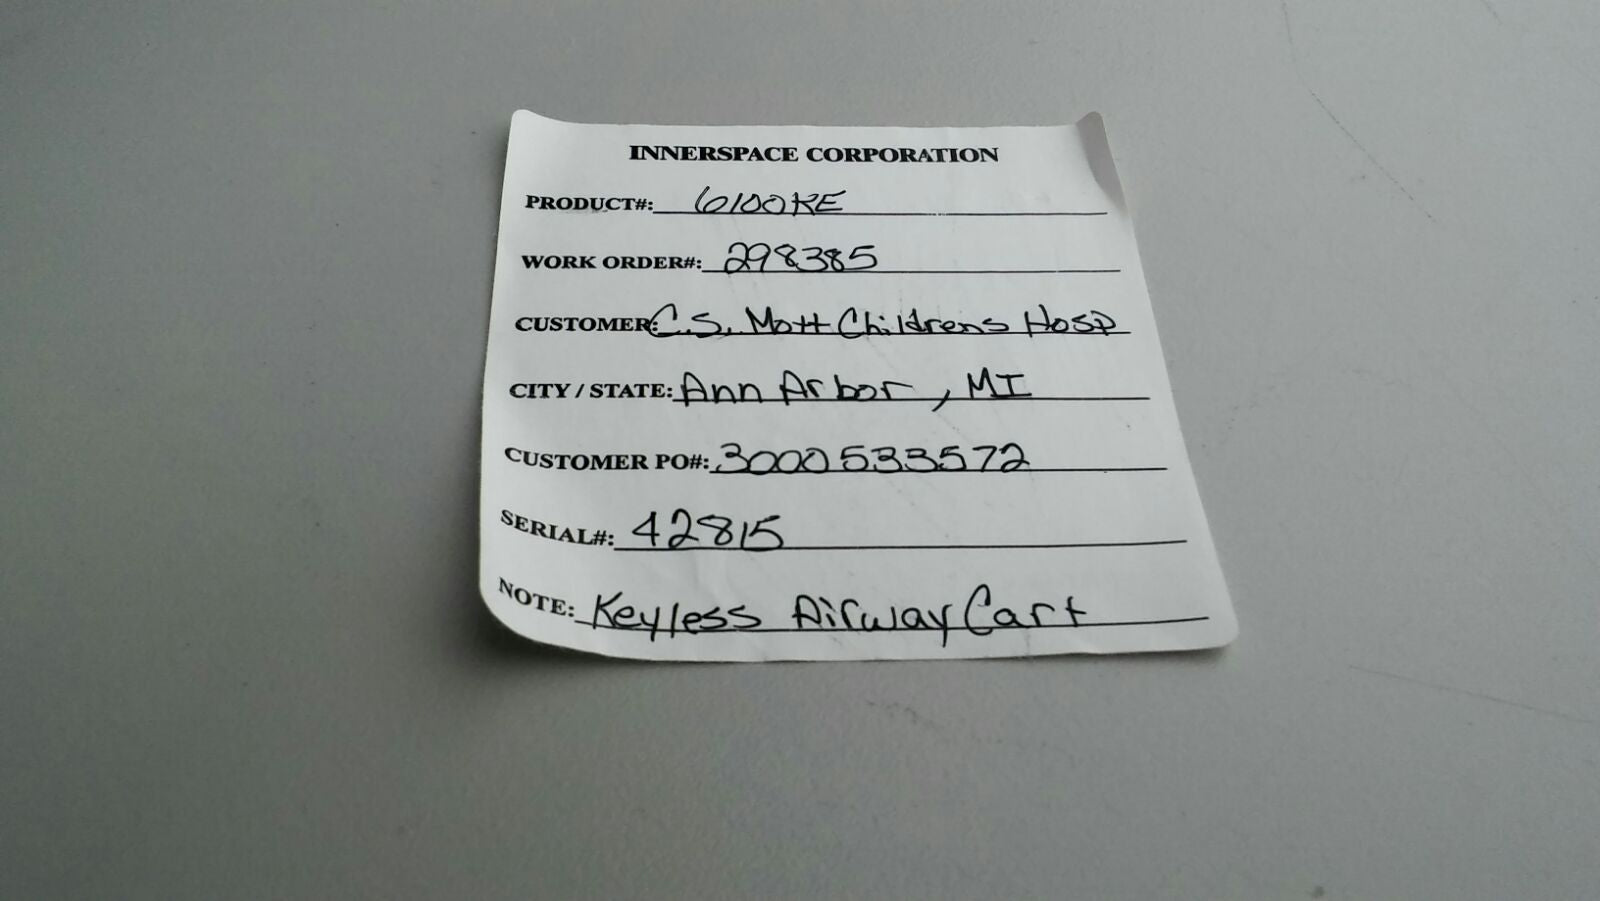 INNERSPACE CORPORATION
PRODUCT#: 6100KE
WORK ORDER#: 298385
CUSTOMER: C.S. Mott Childrens Hosp
CITY / STATE: Ann Arbor, MI
CUSTOMER PO#: 3000533572
SERIAL#: 42815
NOTE: Keyless Airway Cart